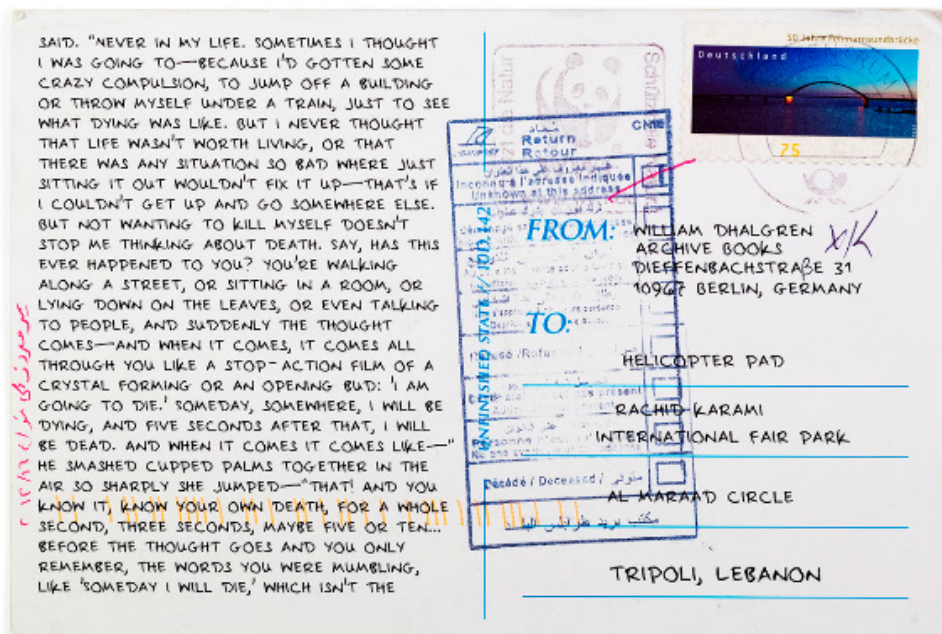 SAID. "NEVER IN MY LIFE. SOMETIMES I THOUGHT
I WAS GOING TO—BECAUSE I'D GOTTEN SOME
CRAZY COMPULSION, TO JUMP OFF A BUILDING
OR THROW MYSELF UNDER A TRAIN, JUST TO SEE
WHAT DYING WAS LIKE. BUT I NEVER THOUGHT
THAT LIFE WASN'T WORTH LIVING, OR THAT
THERE WAS ANY SITUATION SO BAD WHERE JUST
SITTING IT OUT WOULDN'T FIX IT UP—THAT'S IF
I COULDN'T GET UP AND GO SOMEWHERE ELSE.
BUT NOT WANTING TO KILL MYSELF DOESN'T
STOP ME THINKING ABOUT DEATH. SAY, HAS THIS
EVER HAPPENED TO YOU? YOU'RE WALKING
ALONG A STREET, OR SITTING IN A ROOM, OR
LYING DOWN ON THE LEAVES, OR EVEN TALKING
TO PEOPLE, AND SUDDENLY THE THOUGHT
COMES—AND WHEN IT COMES, IT COMES ALL
THROUGH YOU LIKE A STOP-ACTION FILM OF A
CRYSTAL FORMING OR AN OPENING BUD: 'I AM
GOING TO DIE.' SOMEDAY, SOMEWHERE, I WILL BE
DYING, AND FIVE SECONDS AFTER THAT, I WILL
BE DEAD. AND WHEN IT COMES IT COMES LIKE—"
HE SMASHED CUPPED PALMS TOGETHER IN THE
AIR SO SHARPLY SHE JUMPED—"THAT! AND YOU
KNOW IT, KNOW YOUR OWN DEATH, FOR A WHOLE
SECOND, THREE SECONDS, MAYBE FIVE OR TEN...
BEFORE THE THOUGHT GOES AND YOU ONLY
REMEMBER, THE WORDS YOU WERE MUMBLING,
LIKE 'SOMEDAY I WILL DIE,' WHICH ISN'T THE
UNFINISHED STATE
Schützt die Natur
Return
Retour
CN15
Inconnu à l'adresse indiquée
Unknown at this address
Refusé /
Décédé / Deceased / متوفي
مكتب بريد طرابلس
50 Jahre
Deutschland
75
FROM: WILLIAM DHALGREN
ARCHIVE BOOKS
DIEFFENBACHSTRAßE 31
10967 BERLIN, GERMANY
TO:
HELICOPTER PAD
RACHID KARAMI
INTERNATIONAL FAIR PARK
AL MARAAD CIRCLE
TRIPOLI, LEBANON